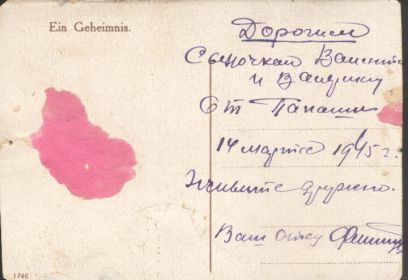 Ein Geheimnis.
Дорогим
Сыночкам
и Валерику
От Папаши
14 марта 1945 г.
Живите дружно.
Ваш отец
1746